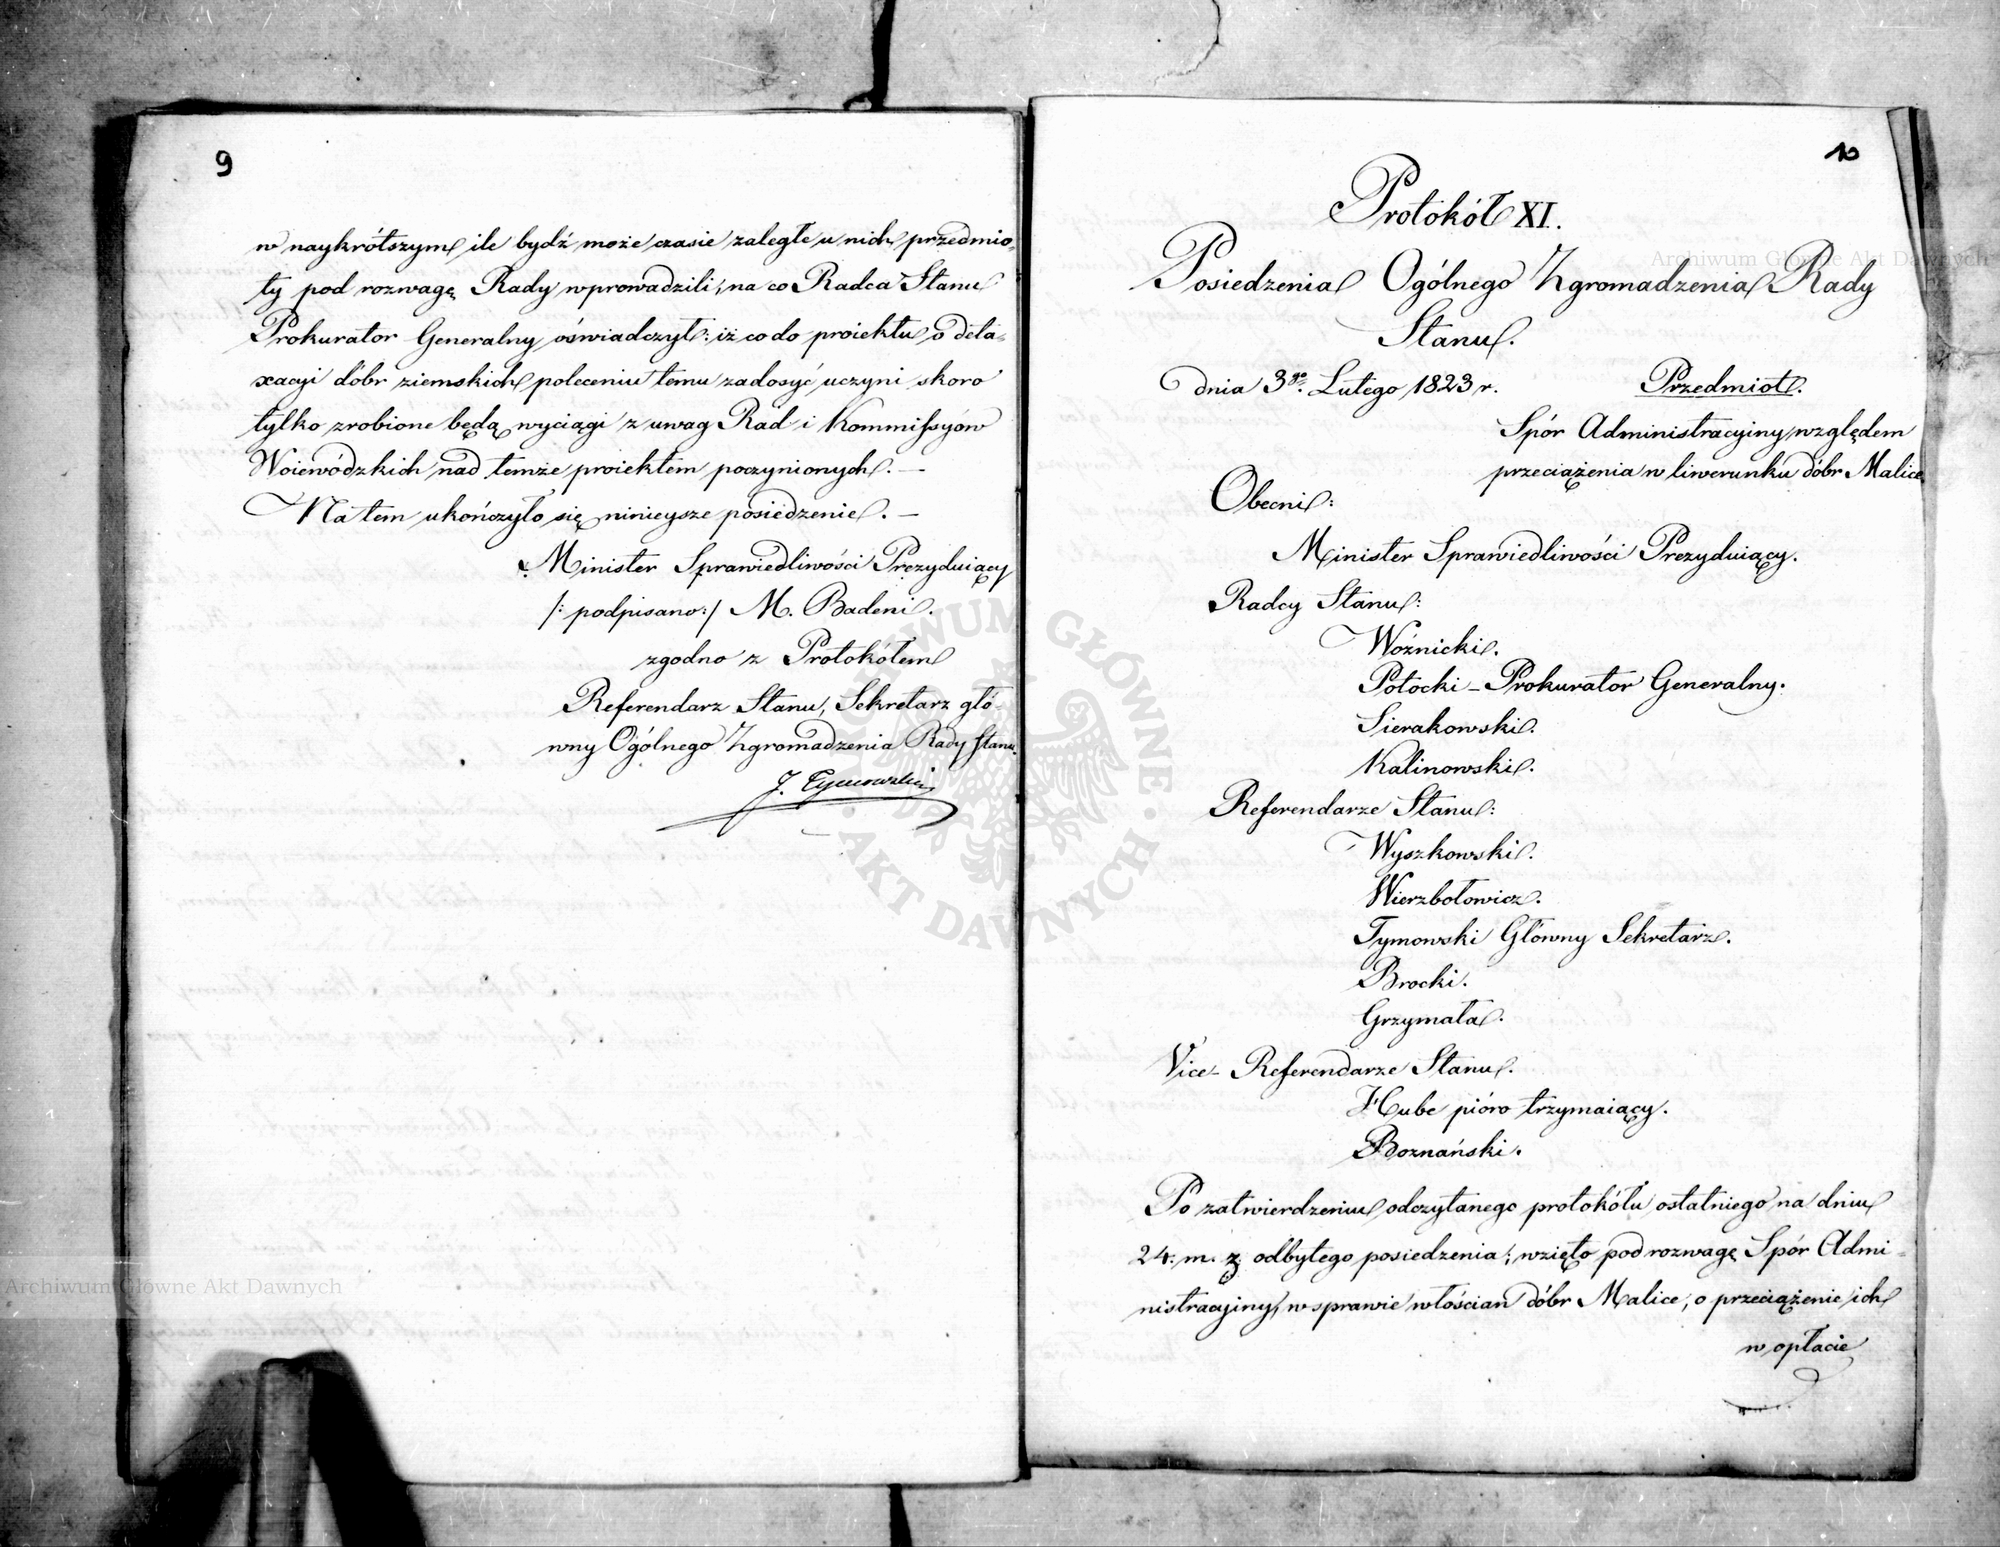 9
w naykrótszym ile bydź może czasie zaległe u nich przedmio-
ty pod rozwagę Rady wprowadzili; na co Radca Stanu
Prokurator Generalny oświadczył: iż co do proiektu o deta-
xacyi dóbr ziemskich poleceniu temu zadosyć uczyni skoro
tylko zrobione będą wyciągi z uwag Rad i Kommissyow
Woiewódzkich nad temże proiektem poczynionych. —
Na tem ukończyło się ninieysze posiedzenie. —
Minister Sprawiedliwości Prezyduiący
/: podpisano :/ M. Badeni.
zgodno z Protokółem
Referendarz Stanu, Sekretarz głó-
wny Ogólnego Zgromadzenia Rady Stanu.
J. Tymowski
10
Protokół XI.
Posiedzenia Ogólnego Zgromadzenia Rady
Stanu.
dnia 3go. Lutego 1823 r.
Przedmiot.
Spór Administracyiny względem
przeciążenia w liwerunku dóbr Malice
Obecni:
Minister Sprawiedliwości Prezyduiący.
Radcy Stanu:
Woźnicki.
Potocki – Prokurator Generalny.
Sierakowski.
Kalinowski.
Referendarze Stanu:
Wyszkowski.
Wierzbołowicz.
Tymowski Główny Sekretarz.
Brocki.
Grzymała.
Vice-Referendarze Stanu.
Hube pióro trzymaiący.
Boznański.
Po zatwierdzeniu odczytanego protokółu ostatniego na dniu
24. m. z. odbytego posiedzenia; wzięto pod rozwagę Spór Admi-
nistracyiny, w sprawie włościan dóbr Malice, o przeciążenie ich
w opłacie
Archiwum Główne Akt Dawnych
Archiwum Główne Akt Dawnych
ARCHIWUM GŁÓWNE · AKT DAWNYCH ·